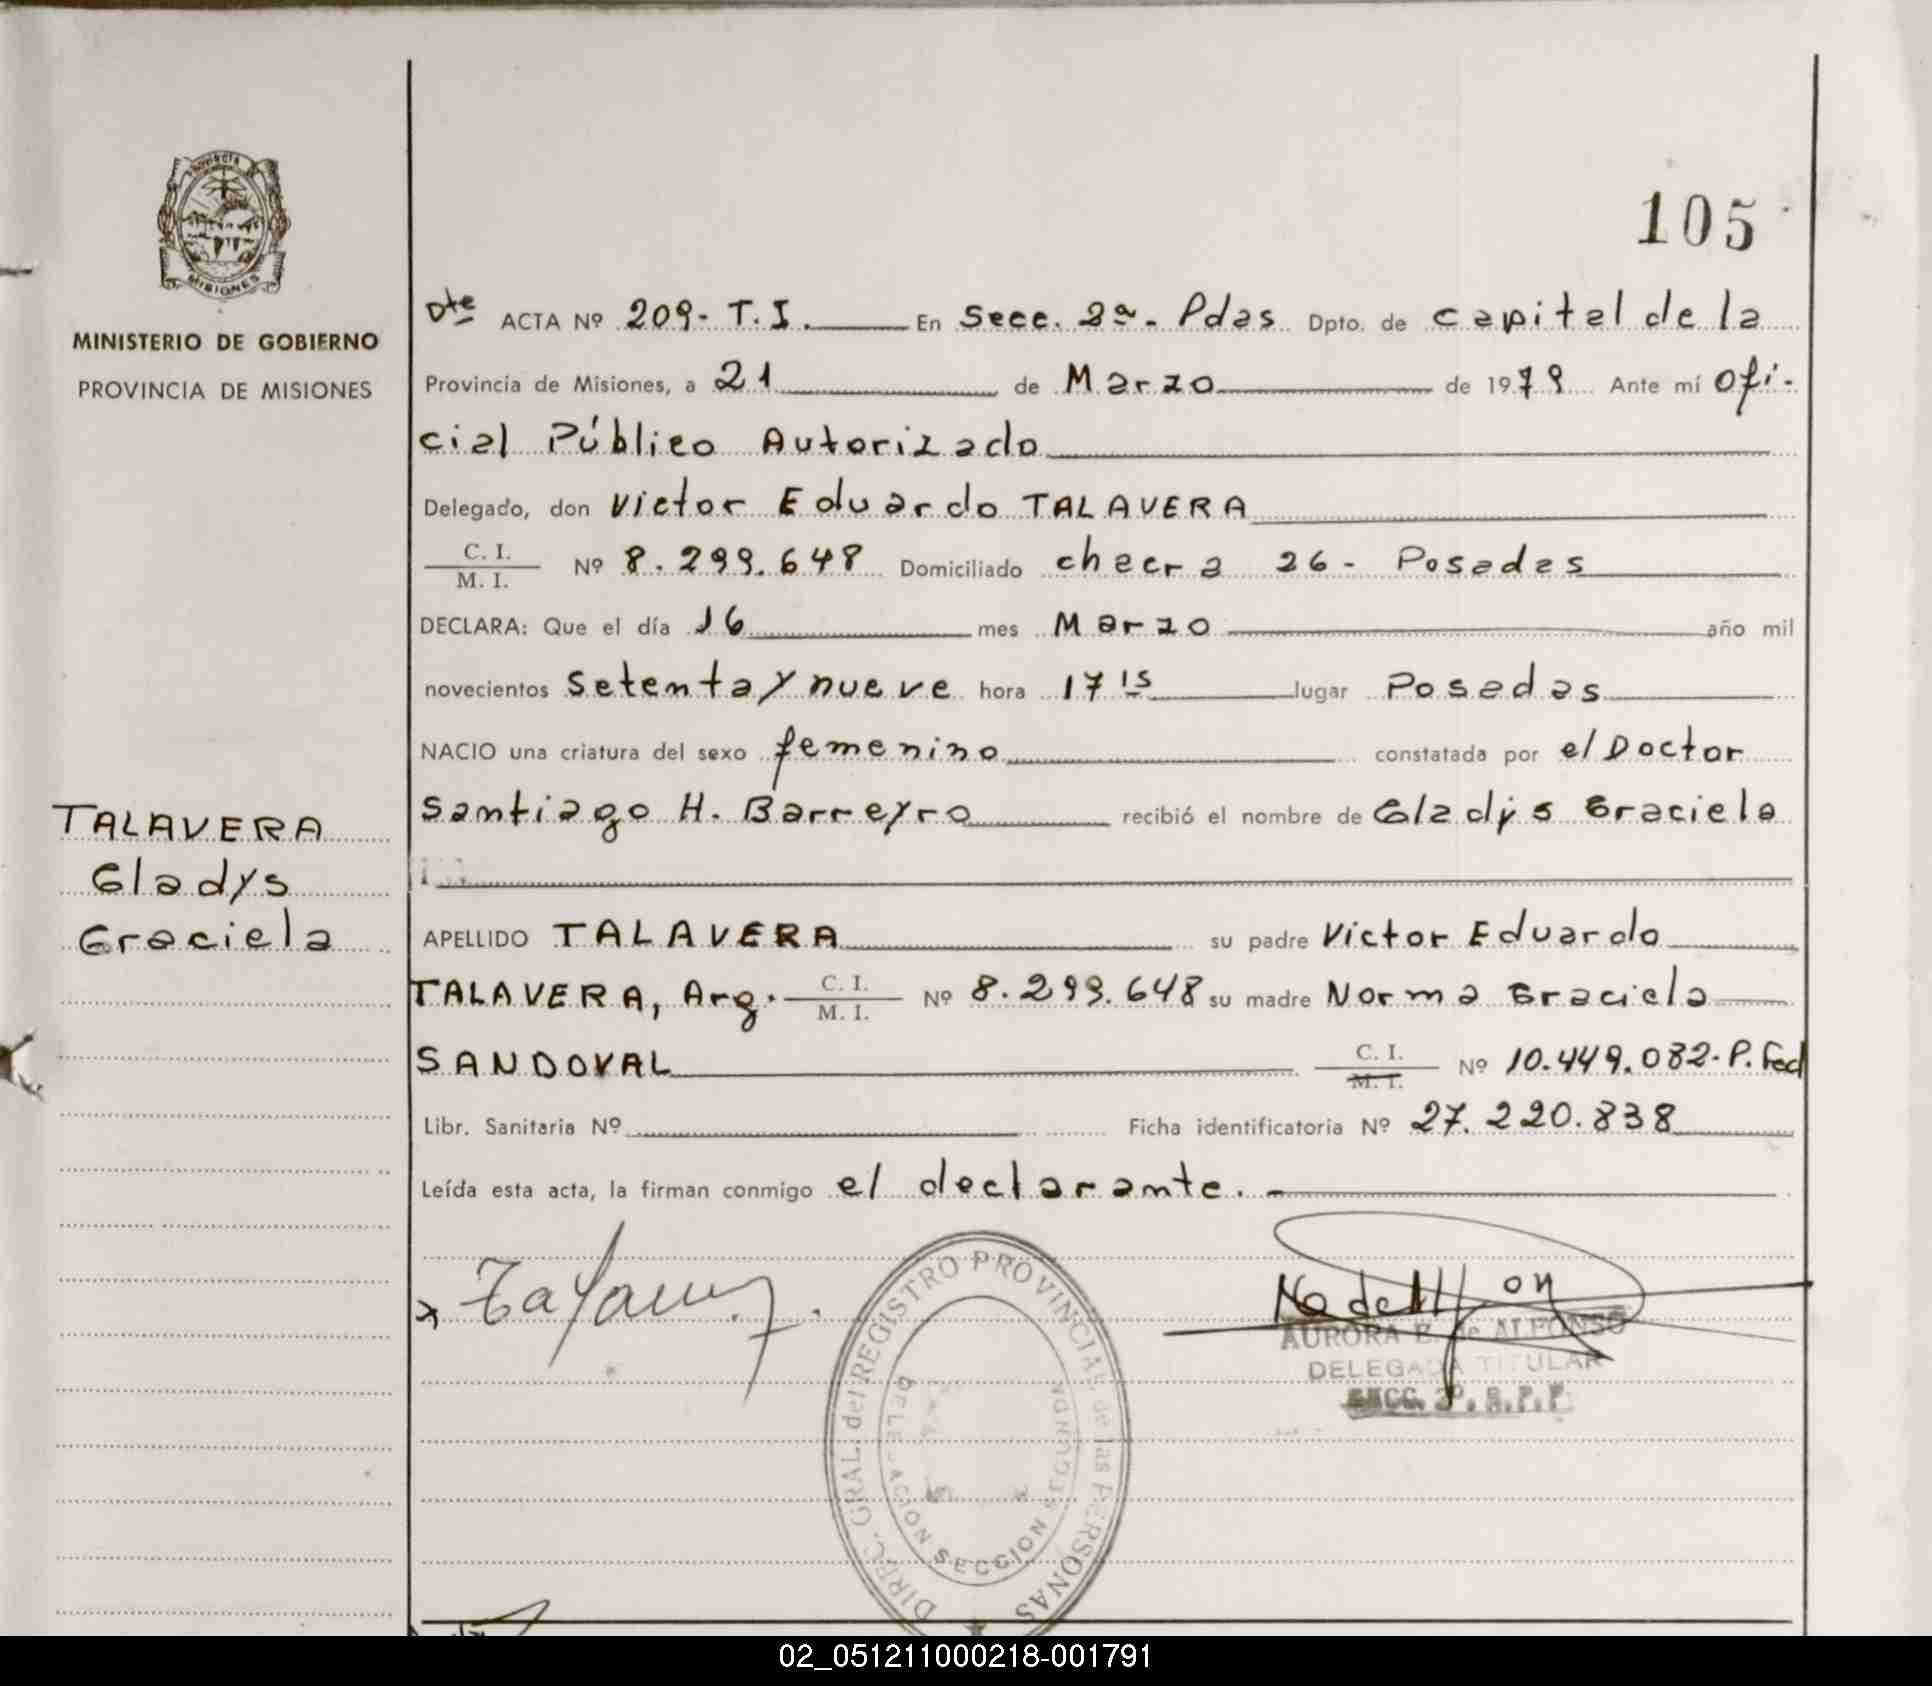 105
PROVINCIA
MISIONES
MINISTERIO DE GOBIERNO
PROVINCIA DE MISIONES
Dte ACTA Nº 209- T.I. En Secc. 2ª- Pdas Dpto. de capital de la
Provincia de Misiones, a 21 de Marzo de 1979 Ante mí ofi-
cial Público Autorizado
Delegado, don Victor Eduardo TALAVERA
C. I.
M. I. Nº 8.299.648 Domiciliado chacra 26- Posadas
DECLARA: Que el día 16 mes Marzo año mil
novecientos setenta y nueve hora 17 15 lugar Posadas
NACIO una criatura del sexo femenino constatada por el Doctor
Santiago H. Barreyro recibió el nombre de Gladys Graciela
TALAVERA
Gladys
Graciela
APELLIDO TALAVERA su padre Victor Eduardo
TALAVERA, Arg. C. I.
M. I. Nº 8.299.648 su madre Norma Graciela
SANDOVAL C. I.
M. I. Nº 10.449.082- P. Fed
Libr. Sanitaria Nº Ficha identificatoria Nº 27.220.838
Leída esta acta, la firman conmigo el declarante.-
DIREC. GRAL. del REGISTRO PROVINCIAL de las PERSONAS
DELEGACION SECCION SEGUNDA
AURORA E. de ALFONSO
DELEGADA TITULAR
02_051211000218-001791